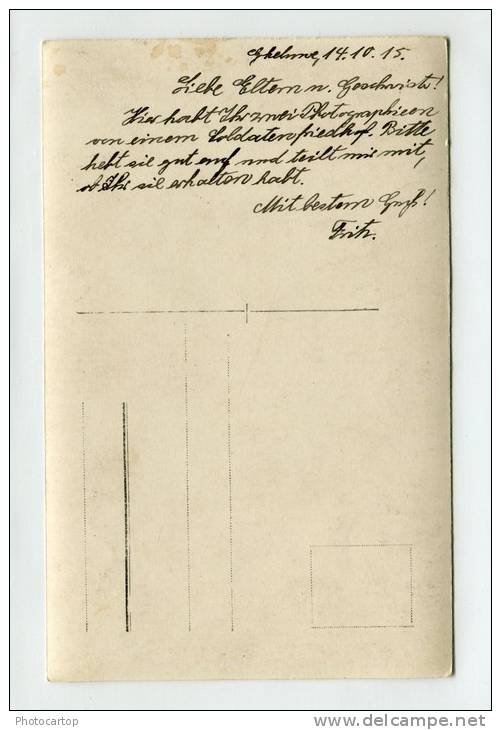 Gheluwe, 14.10.15.
Liebe Eltern u. Geschwister!
Hier habt Ihr zwei Photographieen
von einem Soldatenfriedhof. Bitte
hebt sie gut auf und teilt mir mit,
ob Ihr sie erhalten habt.
Mit bestem Gruß!
Fritz.
Photocartop
delcampe.net